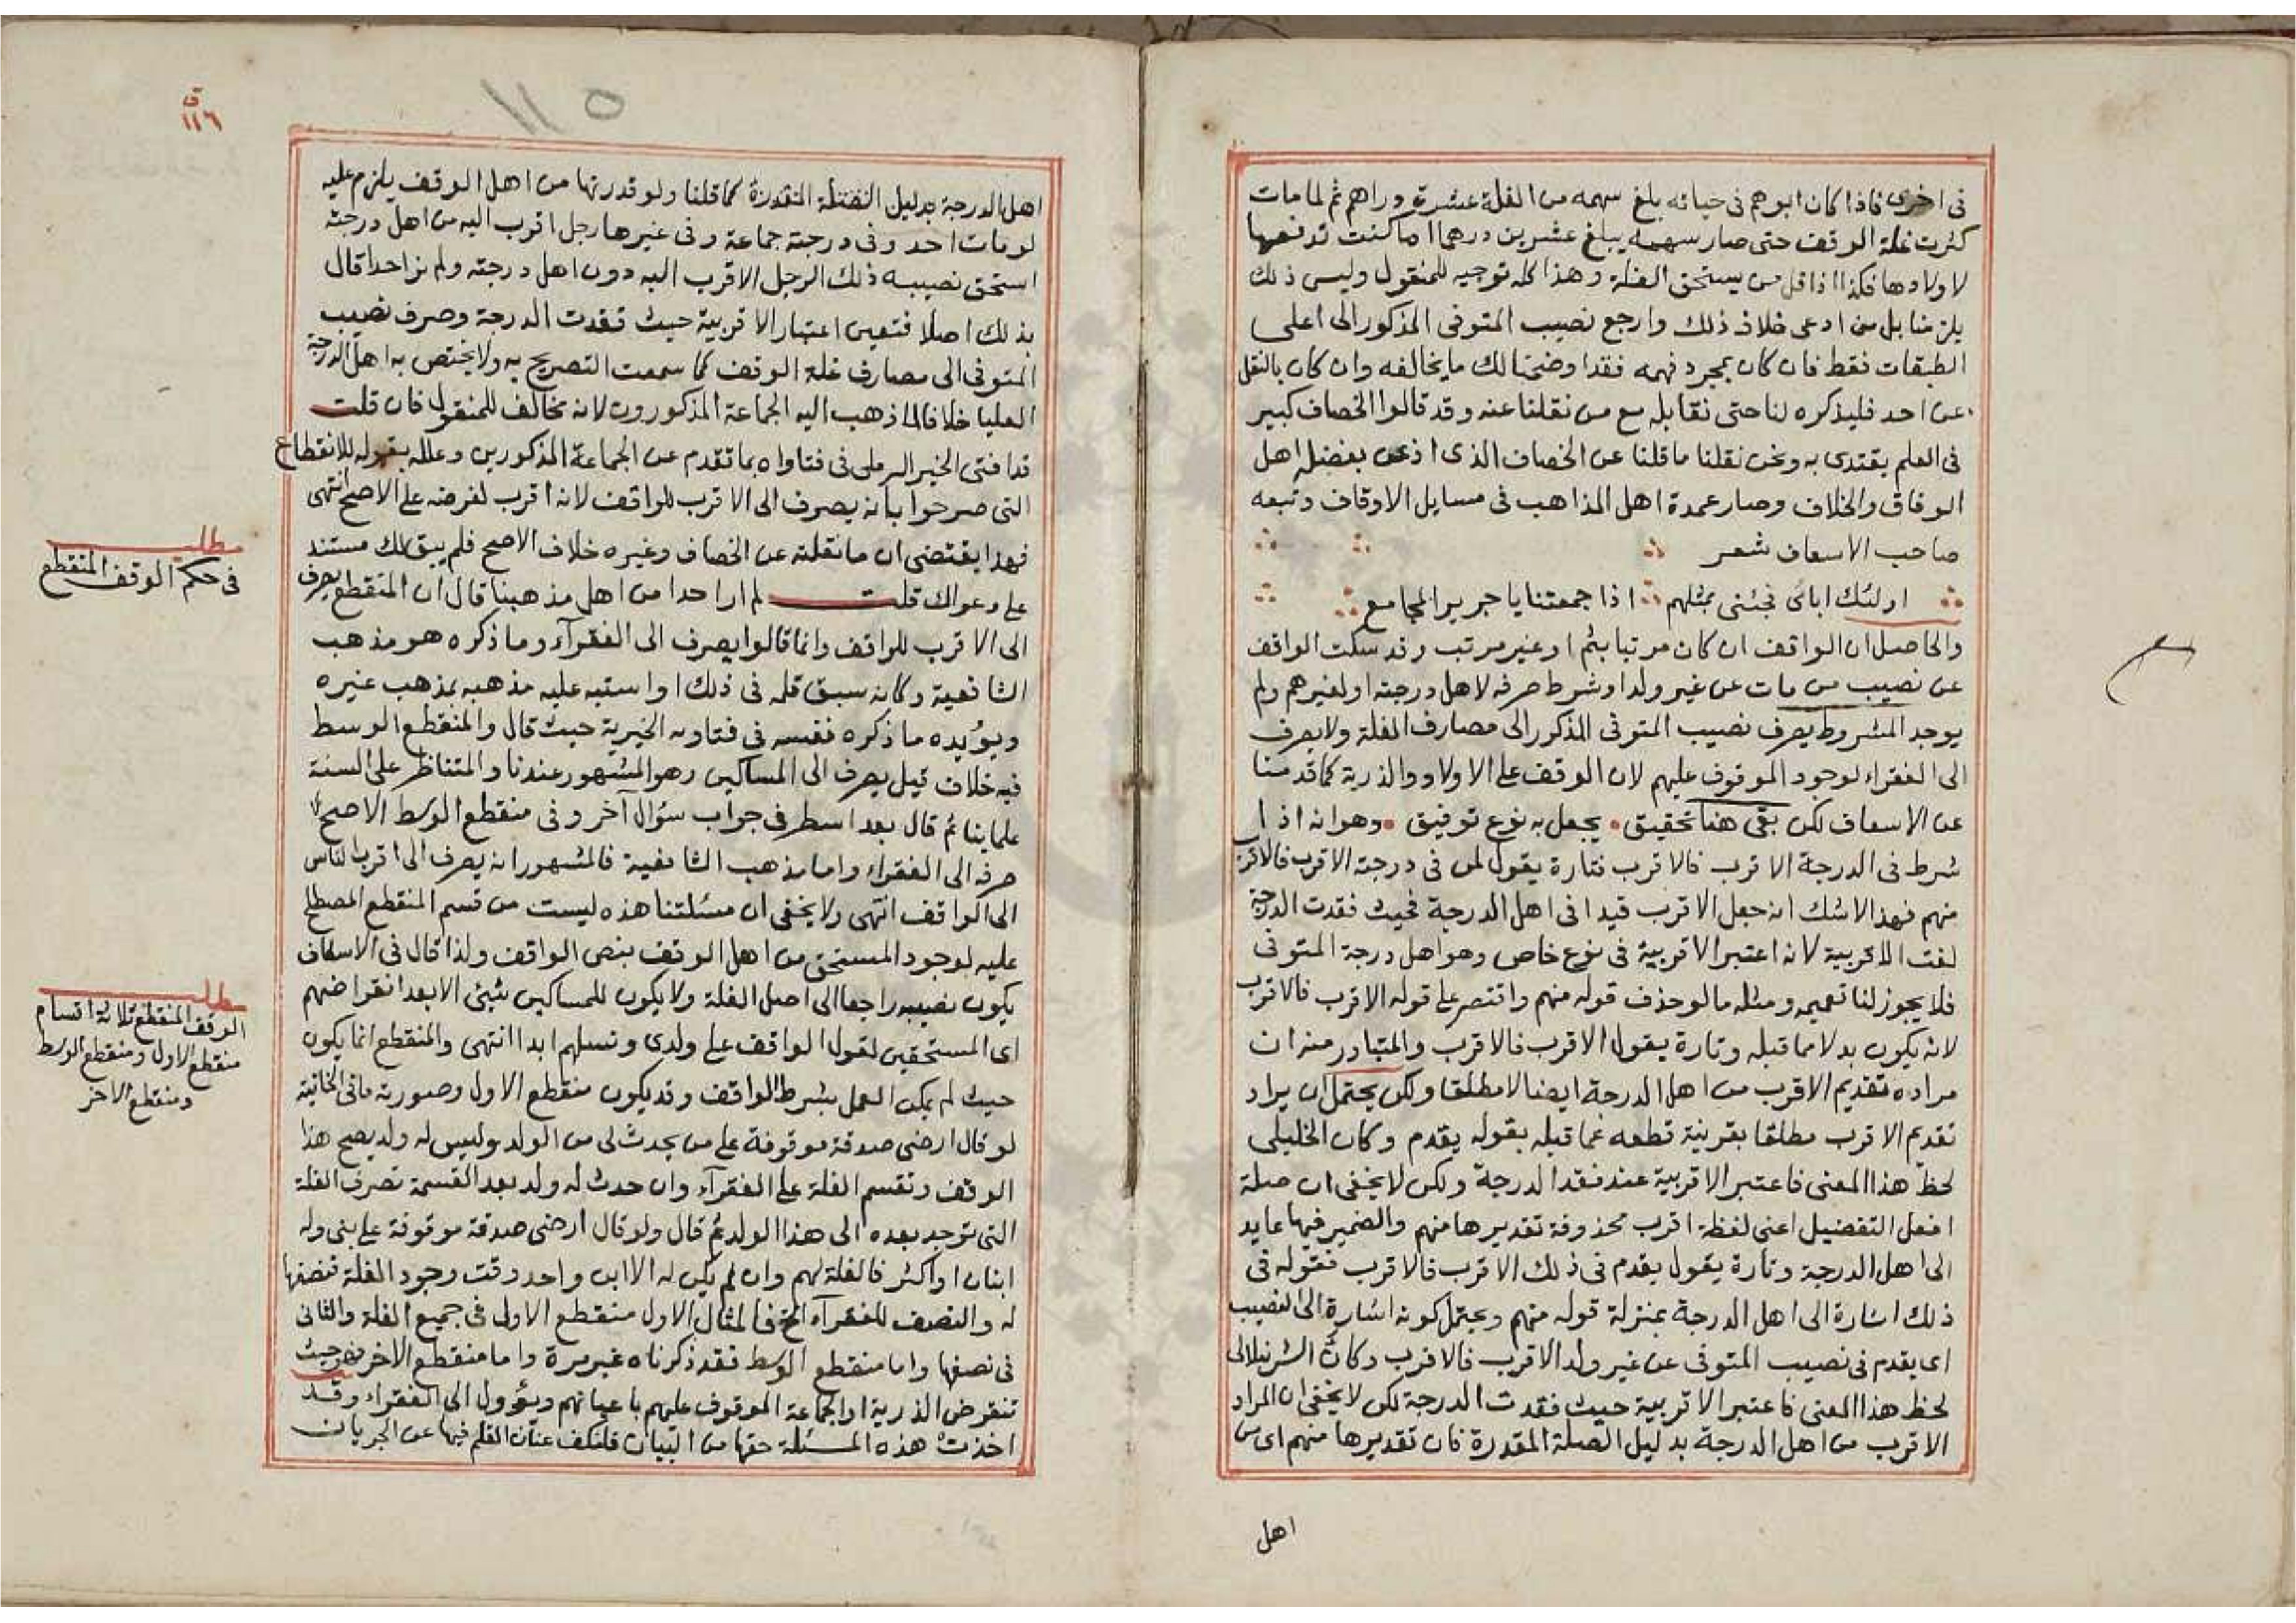 فى اخرى فاذا كان ابوهم فى حياته بلغ سهمه من الغلة عشرة دراهم ثم لما مات
كثرت غلة الوقف حتى صار سهمه يبلغ عشرين درهما اما كنت تدفعها
لاولادها فكذا اذا قل من يستحق الغلة وهذا كله توجيه للمنقول وليس ذلك
يلزمنا بل من ادعى خلاف ذلك وارجع نصيب المتوفى المذكور الى اعلى
الطبقات فقط فان كان بمجرد فهمه فقد اوضحنا لك ما يخالفه وان كان بالنقل
عن احد فليذكره لنا حتى نقابله مع من نقلنا عنه وقد قالوا الخصاف كبير
فى العلم يقتدى به ونحن نقلنا ما قلنا عن الخصاف الذى اذعن بفضله اهل
الوفاق والخلاف وصار عمدة اهل المذاهب فى مسايل الاوقاف وتبعه
صاحب الاسعاف شعر
اولئك ابائى فجئنى بمثلهم اذا جمعتنا يا جرير المجامع
والحاصل ان الواقف ان كان مرتبا بثم او غير مرتب وقد سكت الواقف
عن نصيب من مات عن غير ولد او شرط صرفه لاهل درجته او لغيرهم ولم
يوجد المشروط يصرف نصيب المتوفى المذكور الى مصارف الغلة ولا يصرف
الى الفقراء لوجود الموقوف عليهم لان الوقف على الاولاد والذرية كما قدمنا
عن الاسعاف لكن بقى هنا تحقيق يجعل به نوع توفيق وهو انه اذا
شرط فى الدرجة الاقرب فالاقرب فتارة يقول لمن فى درجته الاقرب فالاقرب
منهم فهذا لا شك انه جعل الاقرب قيدا فى اهل الدرجة فحيث فقدت الدرجة
لغت الاقربية لانه اعتبر الاقربية فى نوع خاص وهو اهل درجة المتوفى
فلا يجوز لنا تعميمه ومثله ما لو حذف قوله منهم واقتصر على قوله الاقرب فالاقرب
لانه يكون بدلا مما قبله وتارة يقول الاقرب فالاقرب والمتبادر منه ان
مراده تقديم الاقرب من اهل الدرجة ايضا لا مطلقا ولكن يحتمل ان يراد
تقديم الاقرب مطلقا بقرينة قطعه عما قبله بقوله يقدم وكان الخليلى
لحظ هذا المعنى فاعتبر الاقربية عند فقد الدرجة ولكن لا يخفى ان صلة
افعل التفضيل اعنى لفظة اقرب محذوفة تقديرها منهم والضمير فيها عايد
الى اهل الدرجة وتارة يقول يقدم فى ذلك الاقرب فالاقرب فقوله فى
ذلك اشارة الى اهل الدرجة بمنزلة قوله منهم ويحتمل كونه اشارة الى النصيب
اى يقدم فى نصيب المتوفى عن غير ولد الاقرب فالاقرب وكان الشرنبلالى
لحظ هذا المعنى فاعتبر الاقربية حيث فقدت الدرجة لكن لا يخفى ان المراد
الاقرب من اهل الدرجة بدليل الصلة المقدرة فان تقديرها منهم اى من
اهل
١١٥
ق
١١٦
اهل الدرجة بدليل المقدرة كما قلنا ولو قدرتها من اهل الوقف يلزم عليه
لو مات احد وفى درجته جماعة وفى غيرها رجل اقرب اليه من اهل درجته
استحق نصيبه ذلك الرجل الاقرب اليه دون اهل درجته ولم نر احدا قال
بذلك اصلا فتعين اعتبار الاقربية حيث فقدت الدرجة وصرف نصيب
المتوفى الى مصارف غلة الوقف كما سمعت التصريح به ولا يختص به اهل الدرجة
العليا خلافا لما ذهب اليه الجماعة المذكورون لانه مخالف للمنقول فان قلت
قد افتى الخير الرملى فى فتاواه بما تقدم عن الجماعة المذكورين وعلله بقوله للانقطاع
التى صرحوا بانه يصرف الى الاقرب للواقف لانه اقرب لغرضه على الاصح انتهى
فهذا يقتضى ان ما نقلته عن الخصاف وغيره خلاف الاصح فلم يبق لك مستند
على دعواك قلت لم ار احدا من اهل مذهبنا قال ان المنقطع يصرف
الى الاقرب للواقف وانما قالوا يصرف الى الفقرآء وما ذكره هو مذهب
الشافعية وكانه سبق قلم فى ذلك او استبه عليه مذهبه بمذهب غيره
ويؤيده ما ذكره نفسه فى فتاويه الخيرية حيث قال والمنقطع الوسط
فيه خلاف قيل يصرف الى المساكين وهو المشهور عندنا والمتناظر على السنة
علماينا ثم قال بعد اسطر فى جواب سؤال آخر وفى منقطع الوسط الاصح
صرفه الى الفقراء واما مذهب الشافعية فالمشهور انه يصرف الى اقرب الناس
الى الواقف انتهى ولا يخفى ان مسئلتنا هذه ليست من قسم المنقطع المصطلح
عليه لوجود المستحق من اهل الوقف بنص الواقف ولذا قال فى الاسعاف
يكون نصيبه راجعا الى اصل الغلة ولا يكون للمساكين شئ الا بعد انقراضهم
اى المستحقين لقول الواقف على ولدى ونسلهم ابدا انتهى والمنقطع انما يكون
حيث لم يمكن العمل بشرط الواقف وقد يكون منقطع الاول وصورته ما فى الخانية
لو قال ارضى صدقة موقوفة على من يحدث لى من الولد وليس له ولد يصح هذا
الوقف وتقسم الغلة على الفقرآء وان حدث له ولد بعد القسمة تصرف الغلة
التى توجد بعده الى هذا الولد ثم قال ولو قال ارضى صدقة موقوفة على بنى وله
ابنان او اكثر فالغلة لهم وان لم يكن له الا ابن واحد وقت وجود الغلة فنصفها
له والنصف للفقرآء الخ فالمثال الاول منقطع الاول فى جميع الغلة والثانى
فى نصفها واما منقطع الوسط فقد ذكرناه غير مرة واما منقطع الاخر فهو حيث
تنقرض الذرية او الجماعة الموقوف عليهم باعيانهم ويؤول الى الفقراء وقد
اخذت هذه المسئلة حقها من البيان فلنكف عنان القلم فيها عن الجريان
مطلب
فى حكم الوقف المنقطع
مطلب
الوقف المنقطع ثلاثة اقسام
منقطع الاول ومنقطع الوسط
ومنقطع الاخر